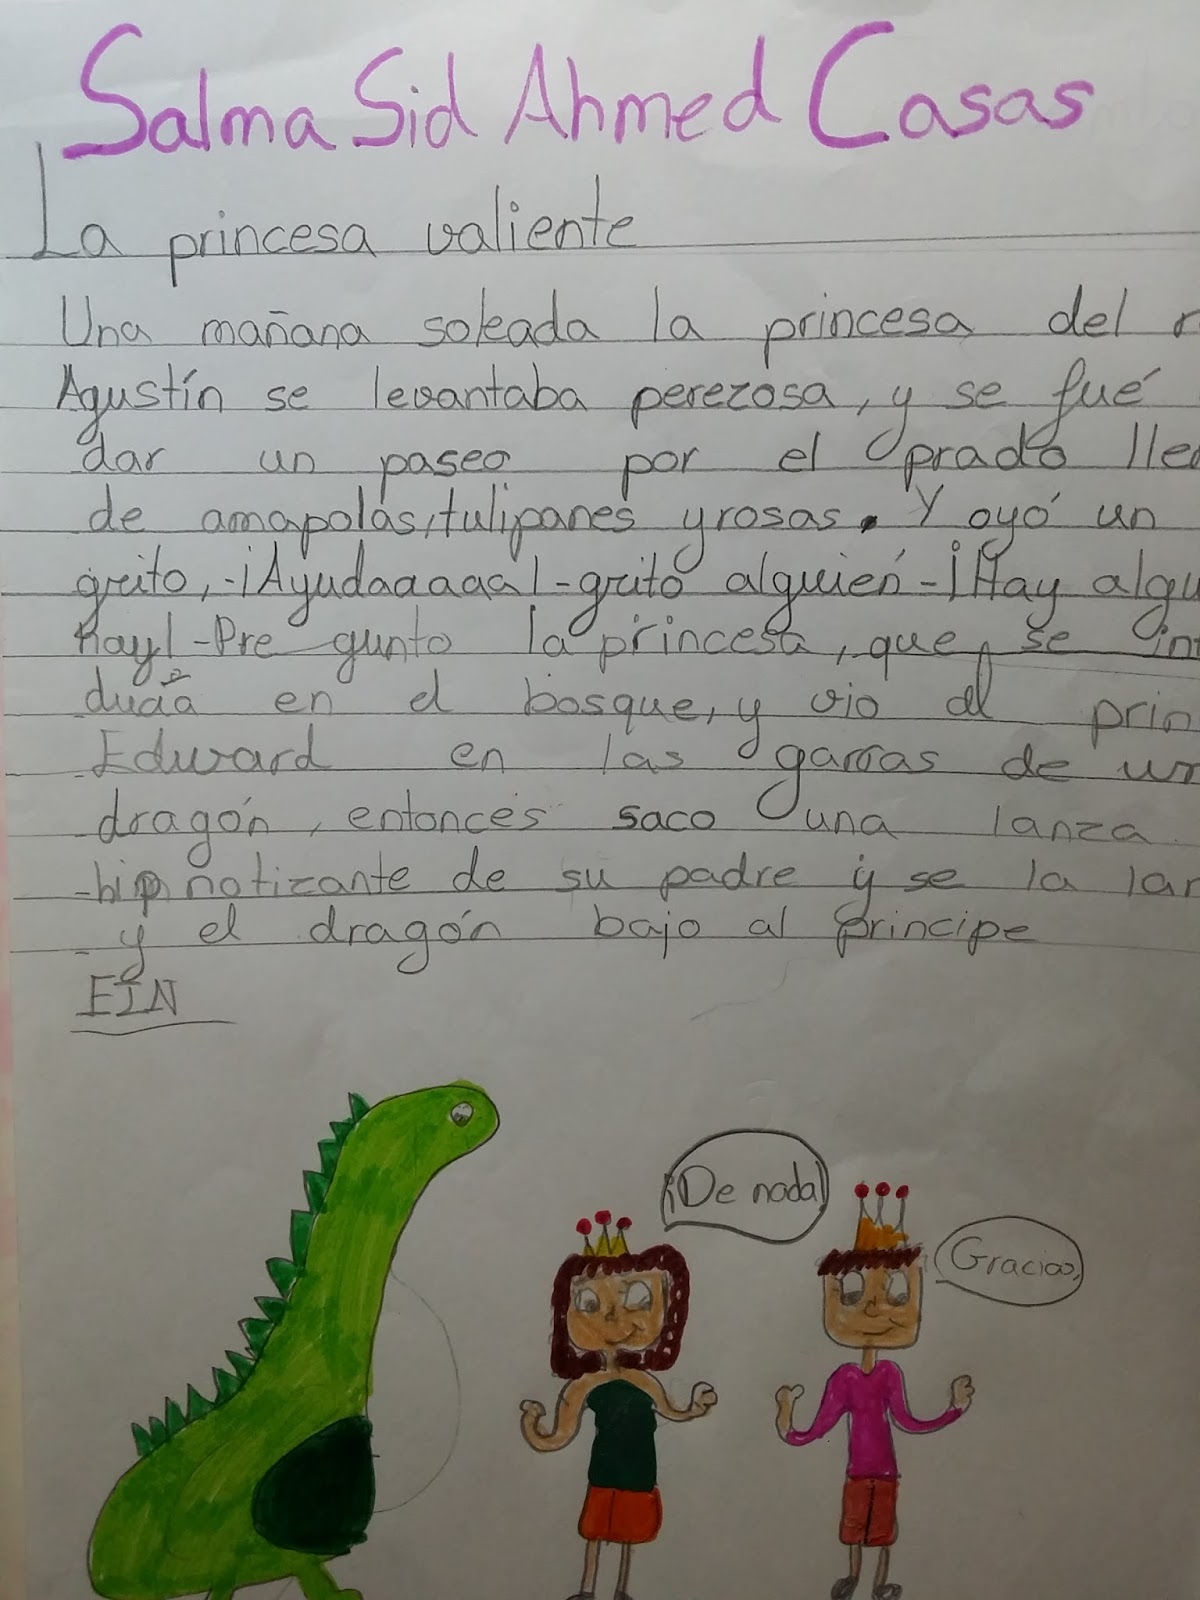 Salma Sid Ahmed Casas
La princesa valiente
Una mañana soleada la princesa del
Agustín se levantaba perezosa, y se fué
dar un paseo por el prado lle
de amapolas, tulipanes y rosas. Y oyó un
grito, -¡Ayudaaaaa!-gritó alguien-¡Hay algu
hay!-Pre gunto la princesa, que se in
en el bosque, y vio al prin
Edward en las garras de un
dragón, entonces saco una lanza
hipnotizante de su padre y se la lan
y el dragón bajo al principe
FIN
¡De nada!
Gracias,